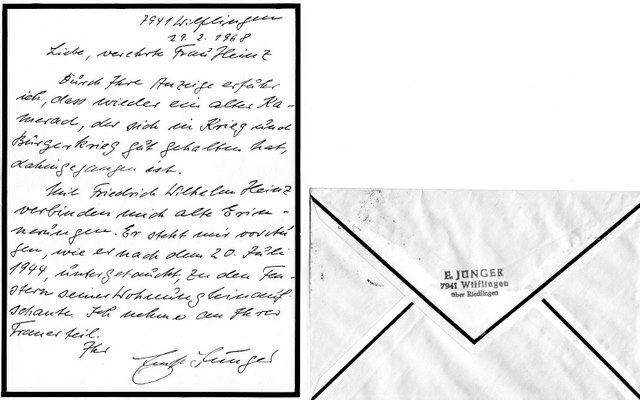 7941 Wilflingen
29. 2. 1968
Liebe, verehrte Frau Heinz
Durch Ihre Anzeige erfuhr
ich, dass wieder ein alter Ka-
merad, der sich in Krieg und
Bürgerkrieg gut gehalten hat,
dahingegangen ist.
Mit Friedrich Wilhelm Heinz
verbinden mich alte Erin-
nerungen. Er steht mir vor Au-
gen, wie er nach dem 20. Juli
1944, untergetaucht, zu den Fen-
stern seiner Wohnung hinauf-
schaute. Ich nehme an Ihrer
Trauer teil.
Ihr
Ernst Jünger
E. JÜNGER
7941 Wilflingen
über Riedlingen